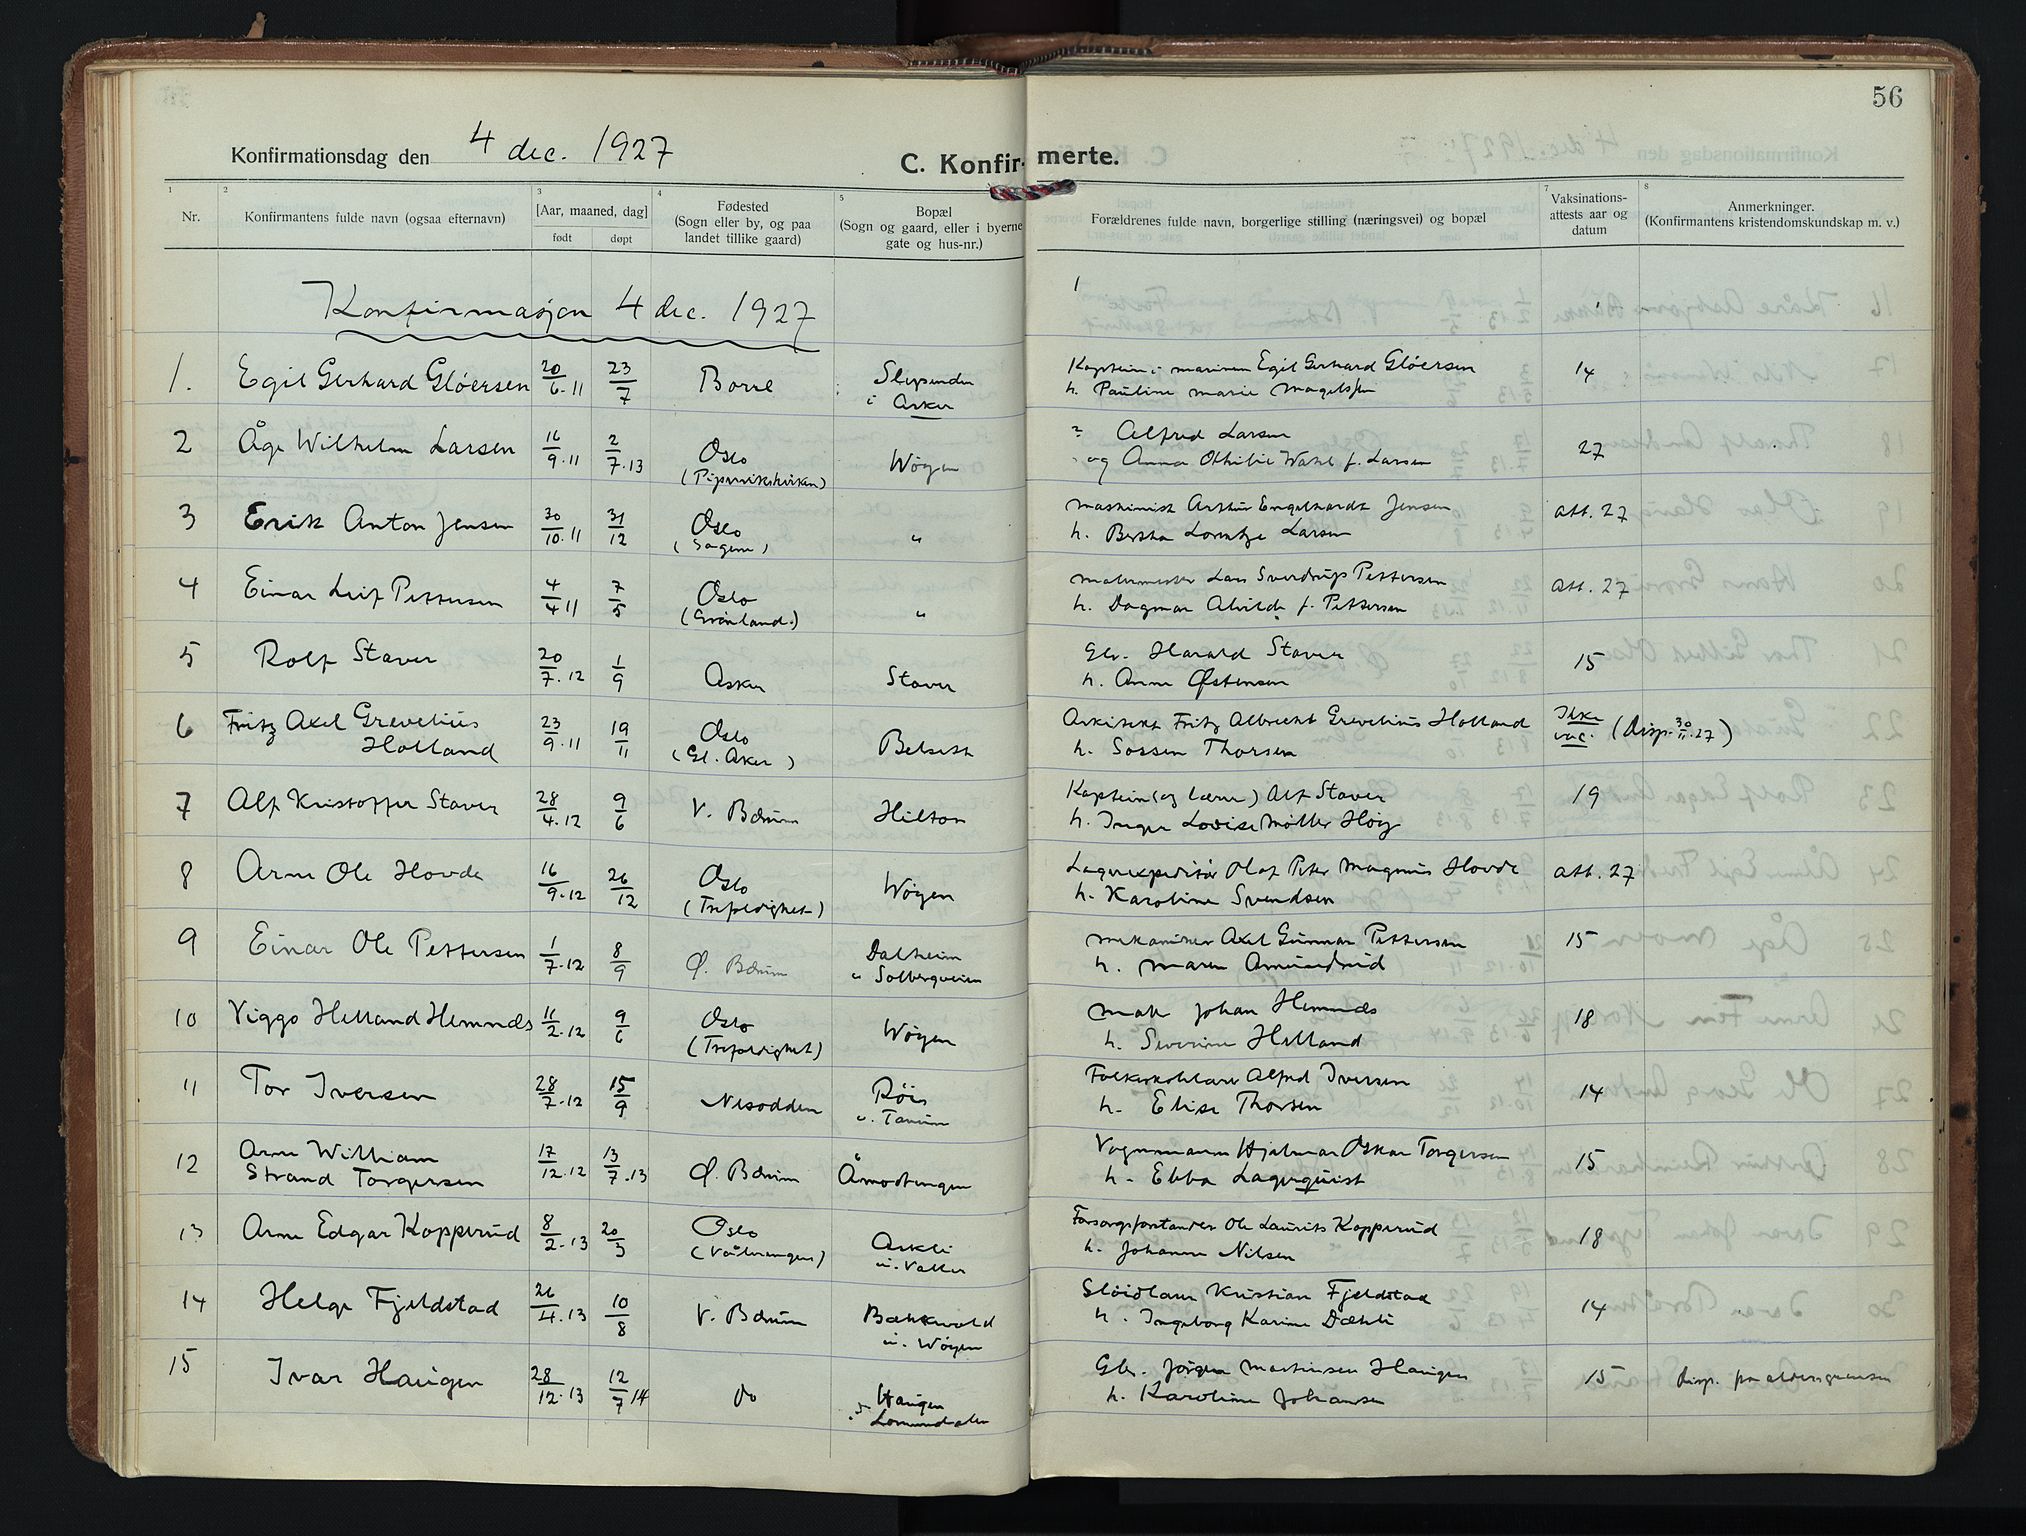 56
Konfirmationsdag den 4 dec. 1927
C. Konfirmerte.
1 2 3 4 5 7 8
Nr.
Konfirmantens fulde navn (ogsaa efternavn)
[Aar, maaned, dag]
født døpt
Fødested
(Sogn eller by, og paa
landet tillike gaard)
Bopæl
(Sogn og gaard, eller i byerne
gate og hus-nr.)
Forældrenes fulde navn, borgerlige stilling (næringsvei) og bopæl
Vaksinations-
attests aar og
datum
Anmerkninger.
(Konfirmantens kristendomskundskap m. v.)
Konfirmasjon 4 dec. 1927
1. Egil Gerhard Glöersen 20/6.11 23/7 Borre Slependen
i Asker
Kaptein i marinen Egil Gerhard Glöersen 14
h. Pauline Marie Magelssen
2 Åge Wilhelm Larsen 16/9.11 2/7.13 Oslo
(Pipervikskirken) Wøyen
? Alfred Larsen 27
og Anna Othilie Wahl f. Larsen
3 Erik Anton Jensen 30/10.11 31/12 Oslo
(Sagene) "
Maskinist Arthur Engelhardt Jensen att. 27
h. Bertha Lorentze Larsen
4 Einar Leif Pettersen 4/4 11 7/5 Oslo
(Grönland.) "
Malermester Lars Sverdrup Pettersen att. 27
h. Dagmar Alvilde f. Pettersen
5 Rolf Staver 20/7.12 1/9 Asker Staver
Gbr. Harald Staver 15
h. Anne Østensen
6 Fritz Axel Grevelius
Holland 23/9.11 19/11 Oslo
(Gl. Aker) Belset
Arkitekt Fritz Albrecht Grevelius Holland Ikke
vac. (Disp. 30/11.27)
h. Sossen Thorsen
7 Alf Kristoffer Staver 28/4.12 9/6 V. Bærum Hilton
Kaptein (og lærer) Alf Staver 19
h. Inger Lovise Møller Höy
8 Arne Ole Hovde 16/9.12 26/12 Oslo
(Trefoldighet) Wøyen
Lagerexpeditör Olaf Peter Magnus Hovde att. 27
h. Karoline Svendsen
9 Einar Ole Pettersen 1/7.12 8/9 Ø. Bærum Dalheim
" Solbergveien
Mekaniker Axel Gunnar Pettersen 15
h. Maren Amundrud
10 Viggo Helland Hemnes 11/2.12 9/6 Oslo
(Trefoldighet) Wøyen
Johan Hemnes 18
h. Severine Helland
11 Tor Iversen 28/7.12 15/9 Nesodden Röis
u. Tanum
Alfred Iversen 14
h. Elise Thorsen
12 Arne William
Strand Torgersen 17/12.12 13/7.13 Ø. Bærum Åmodtengen
Vognmann Hjalmar Oskar Torgersen 15
h. Ebba Lagerquist
13 Arne Edgar Kopperud 8/2.13 20/3 Oslo
(Vålerengen) Askli
u. Valler
Forsorgsforstander Ole Laurits Kopperud 18
h. Johanne Nilsen
14 Helge Fjeldstad 26/4.13 10/8 V. Bærum Bækkevold
u. Wøyen
Slöidlærer Kristian Fjeldstad 14
h. Ingeborg Karine Dæhli
15 Ivar Haugen 28/12.13 12/7 14 do Haugen
Lommedalen
Gbr. Jörgen Martinsen Haugen 15 Disp. fra aldersgrensen
h. Karoline Johansen